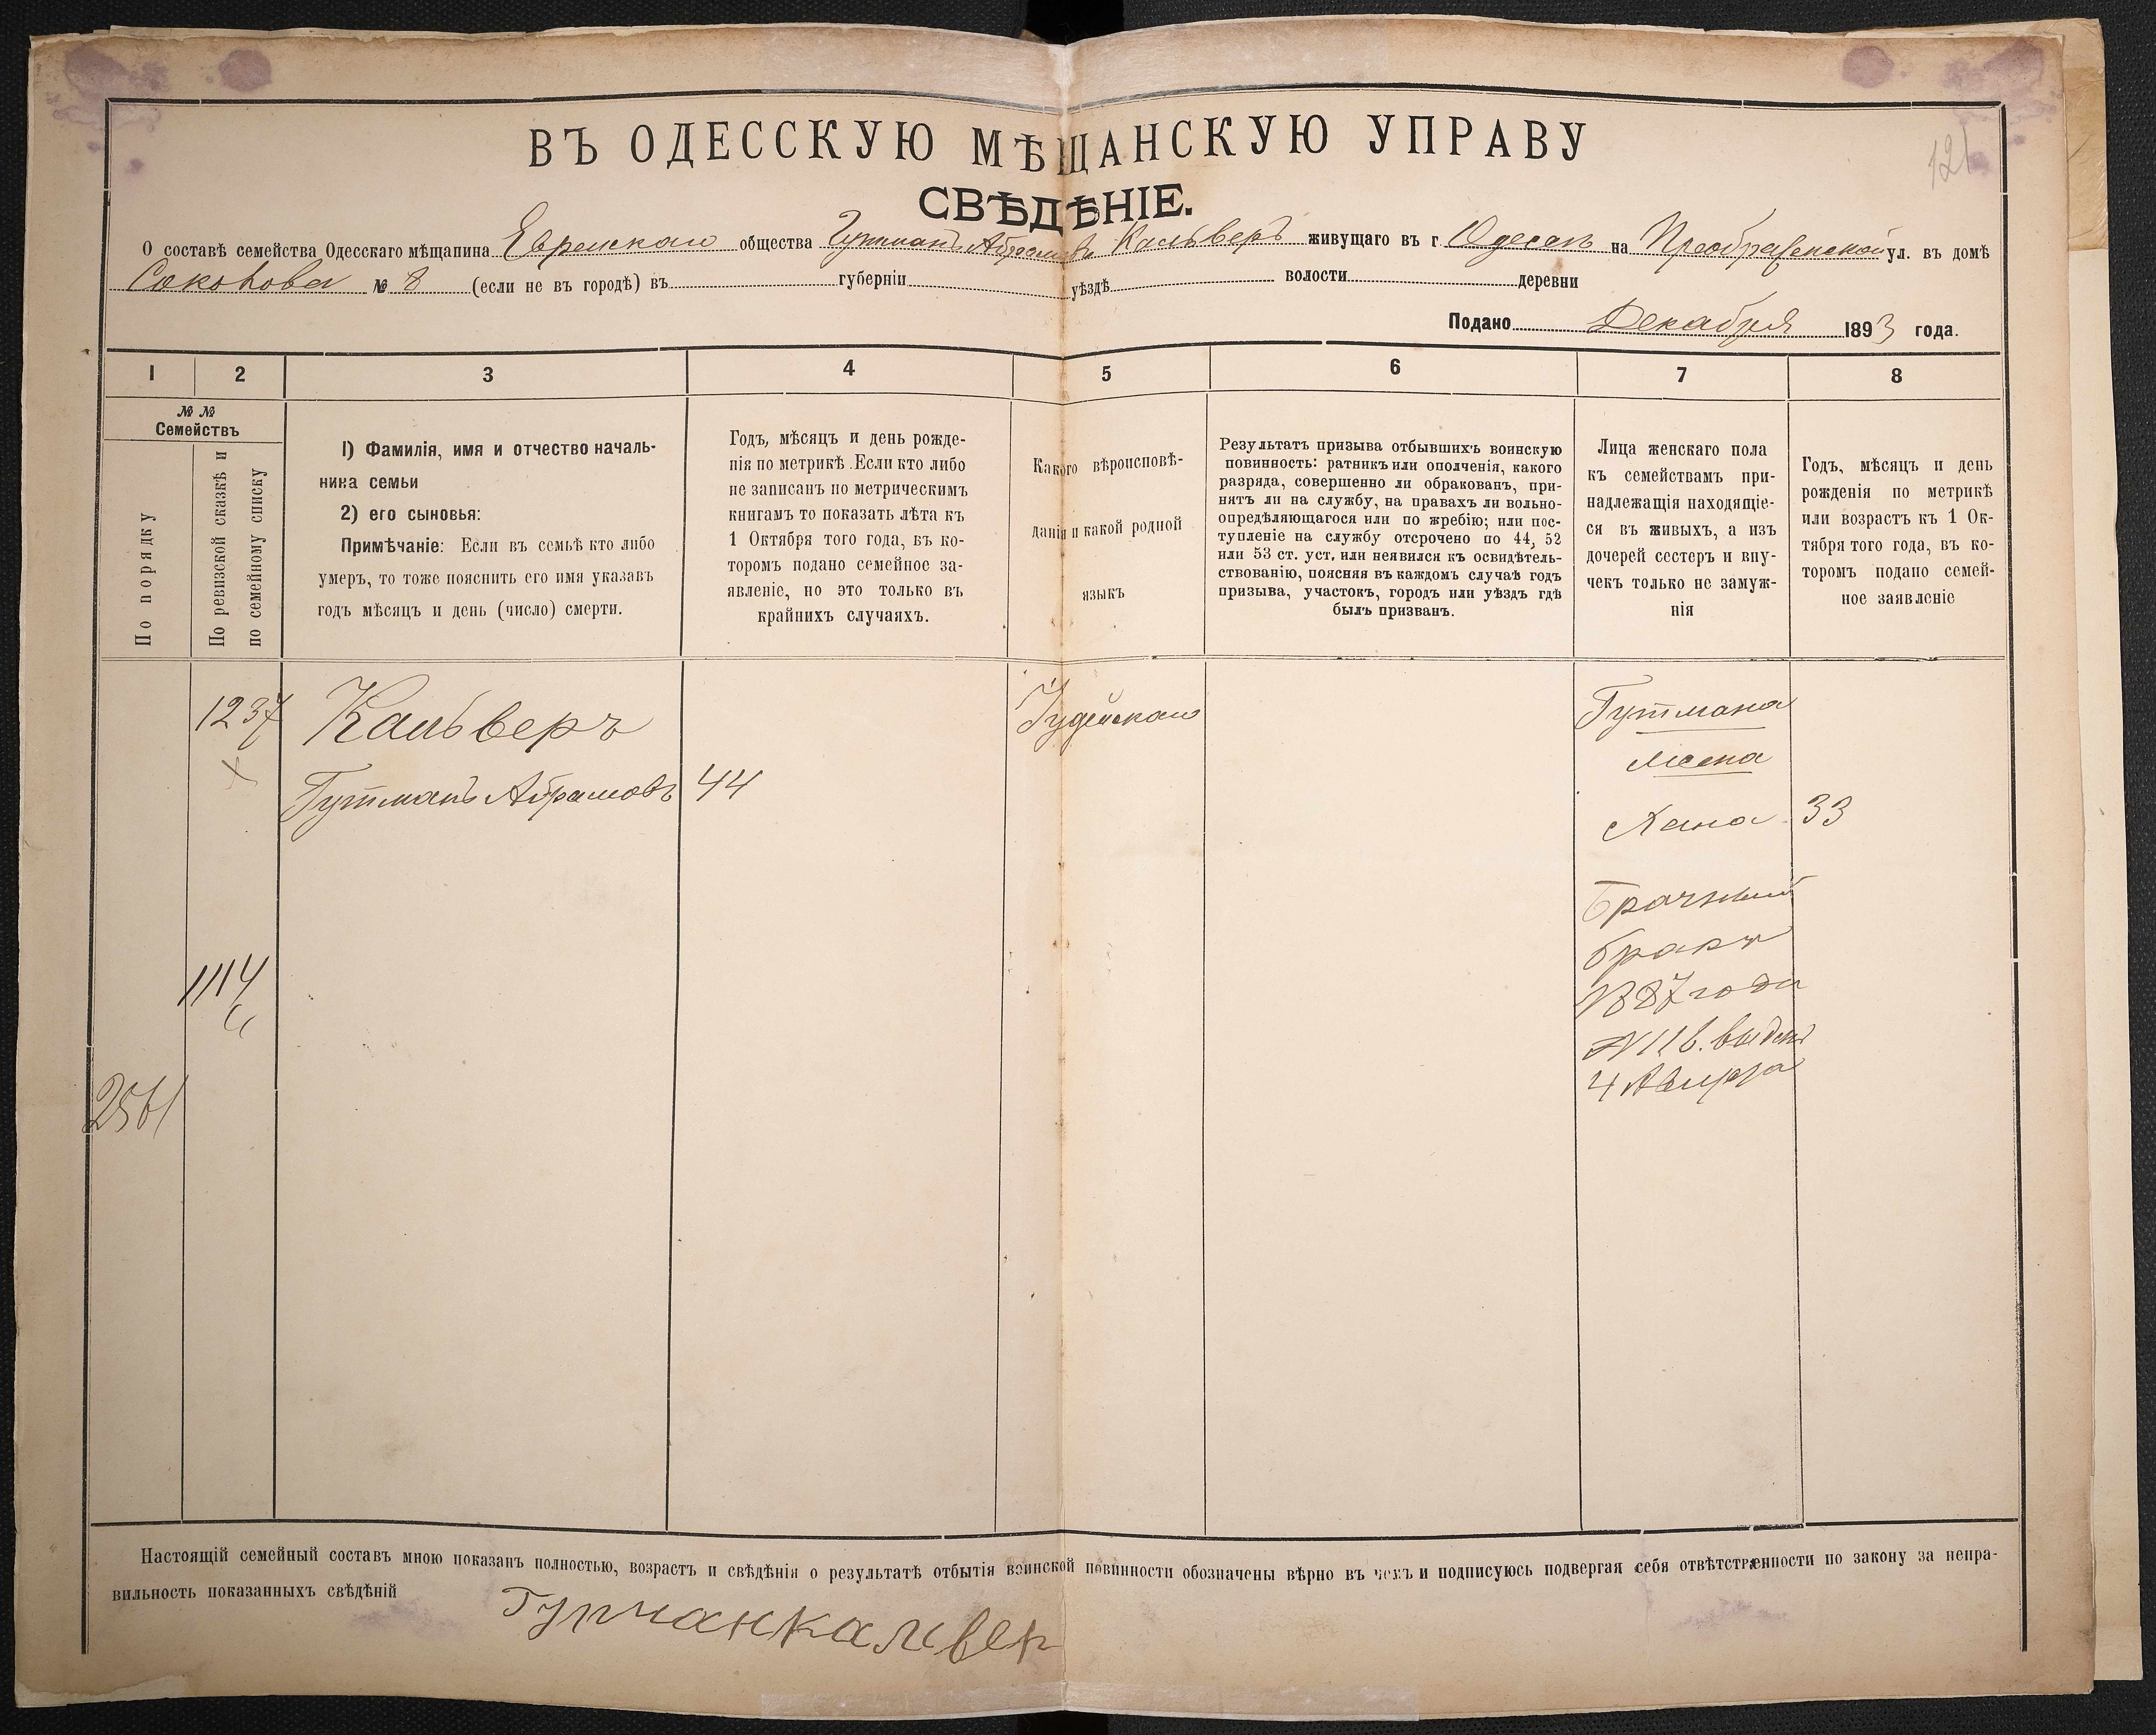 121
ВЪ ОДЕССКУЮ МѢЩАНСКУЮ УПРАВУ
СВѢДѢНІЕ.
О составѣ семейства Одесскаго мѣщанина Еврейскаго общества Гутманъ Абрамовъ Кальверъ живущаго въ г. Одессѣ на Преображенской ул. въ домѣ
Соколова № 8 (если не въ городѣ) въ губерніи уѣздѣ волости деревни
Подано Декабря 1893 года.
1 2 3 4 5 6 7 8
№ №
Семействъ
По порядку
По ревизской сказкѣ и
по семейному списку
1) Фамилія, имя и отчество началь-
ника семьи
2) его сыновья:
Примѣчаніе: Если въ семьѣ кто либо
умеръ, то тоже пояснить его имя указавъ
годъ мѣсяцъ и день (число) смерти.
Годъ, мѣсяцъ и день рожде-
нія по метрикѣ. Если кто либо
не записанъ по метрическимъ
книгамъ то показать лѣта къ
1 Октября того года, въ ко-
торомъ подано семейное за-
явленіе, но это только въ
крайнихъ случаяхъ.
Какого вѣроисповѣ-
данія и какой родной
языкъ
Результатъ призыва отбывшихъ воинскую
повинность: ратникъ или ополченія, какого
разряда, совершенно ли обракованъ, при-
нятъ ли на службу, на правахъ ли вольно-
опредѣляющагося или по жребію; или пос-
тупленіе на службу отсрочено по 44, 52
или 53 ст. уст. или неявился къ освидѣтель-
ствованію, поясняя въ каждомъ случаѣ годъ
призыва, участокъ, городъ или уѣздъ гдѣ
былъ призванъ.
Лица женскаго пола
къ семействамъ при-
надлежащія находящіе-
ся въ живыхъ, а изъ
дочерей сестеръ и вну-
чекъ только не замуж-
нія
Годъ, мѣсяцъ и день
рожденія по метрикѣ
или возрастъ къ 1 Ок-
тября того года, въ ко-
торомъ подано семей-
ное заявленіе
1237 Кальверъ Іудейскаго Гутмана
жена
Гутманъ Абрамовъ 44
Хана 33
Брачный
бракъ
1887 года
1114
N 116. выдан
4 Августа
2561
Настоящій семейный составъ мною показанъ полностью, возрастъ и свѣдѣнія о результатѣ отбытія воинской повинности обозначены вѣрно въ чемъ и подписуюсь подвергая себя отвѣтственности по закону за непра-
вильность показанныхъ свѣдѣній
Гутманкалвер